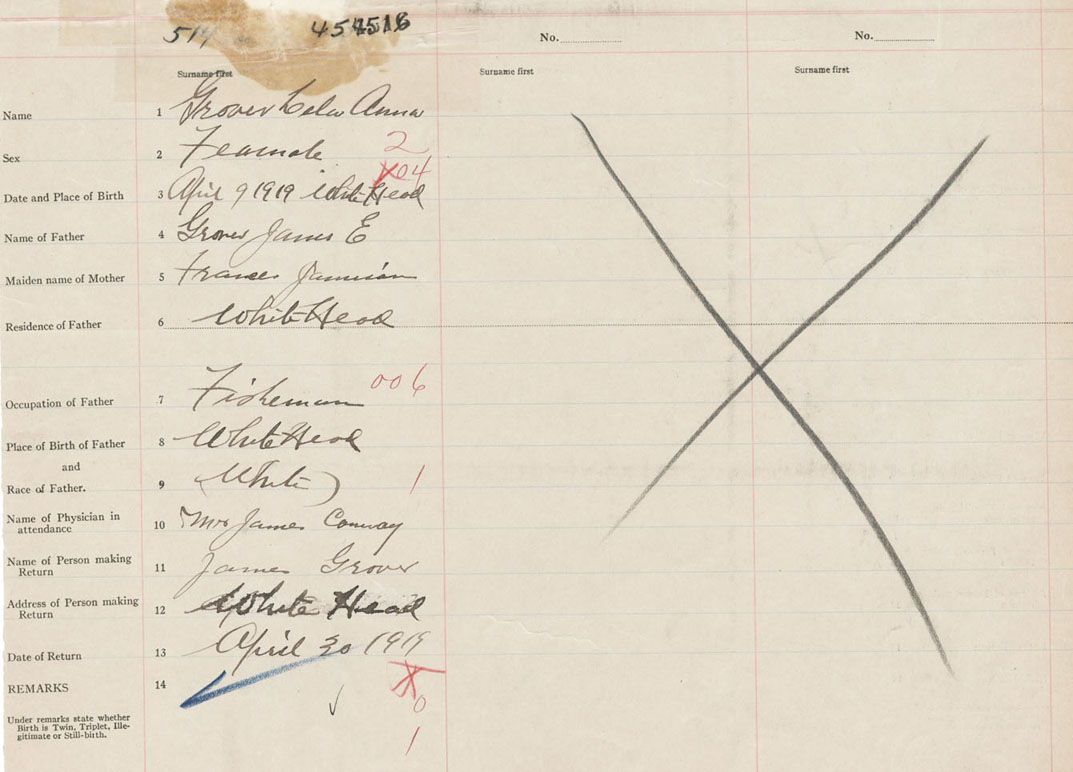 514 454516 No. No.
Surname first Surname first Surname first
Name 1 Grover Anna
Sex 2 Feamale 2
104
Date and Place of Birth 3 April 9 1919 White Head
Name of Father 4 Grover James E
Maiden name of Mother 5 Frances
Residence of Father 6 White Head
Occupation of Father 7 Fisheman 006
Place of Birth of Father 8 White Head
and
Race of Father. 9 (White) 1
Name of Physician in
attendance 10 Mrs James Conway
Name of Person making
Return 11 James Grover
Address of Person making
Return 12 White Head
Date of Return 13 April 30 1919
REMARKS 14
0
Under remarks state whether
Birth is Twin, Triplet, Ille-
gitimate or Still-birth.
1